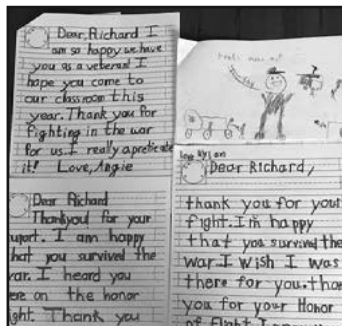 Dear, Richard I
am so happy we have
you as a veteran! I
hope you come to
our classroom this
year. Thank you for
fighting in the war
for us. I really apretieate
it! Love, Angie
Dear Richard
Thankyou! for your
uport. I am happy
hat you survived the
ar. I heard you
ere on the honor
ight. Thank you
Dear Richard,
thank you for your
fight. I'm happy
that you survived the
war. I wish I was
there for you. than
you for your Honor
of flight